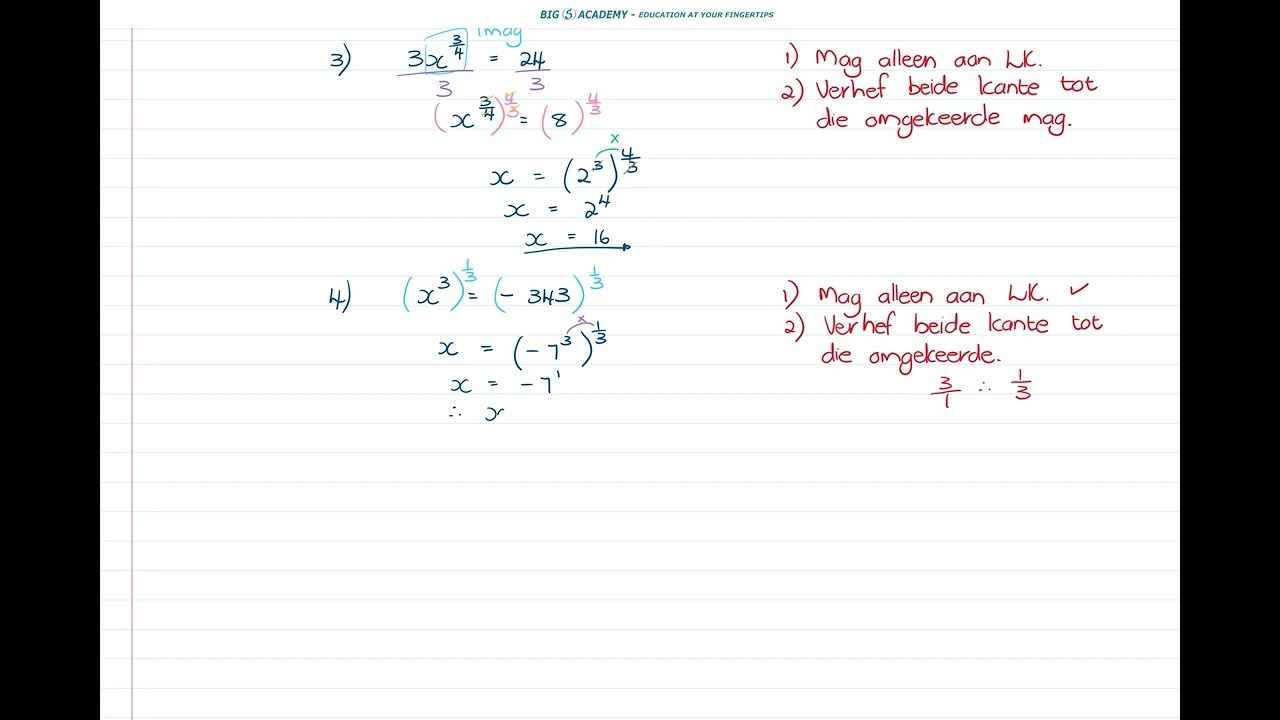 BIG 5 ACADEMY - EDUCATION AT YOUR FINGERTIPS
1mag
3) 3x^{3/4} / 3 = 24 / 3
(x^{3/4})^{4/3} = (8)^{4/3}
x
x = (2^3)^{4/3}
x = 2^4
x = 16
1) Mag alleen aan LK.
2) Verhef beide kante tot
die omgekeerde mag.
4) (x^3)^{1/3} = (- 343)^{1/3}
x
x = (- 7^3)^{1/3}
x = - 7^1
∴ x
1) Mag alleen aan LK. ✓
2) Verhef beide kante tot
die omgekeerde.
3/1 ∴ 1/3